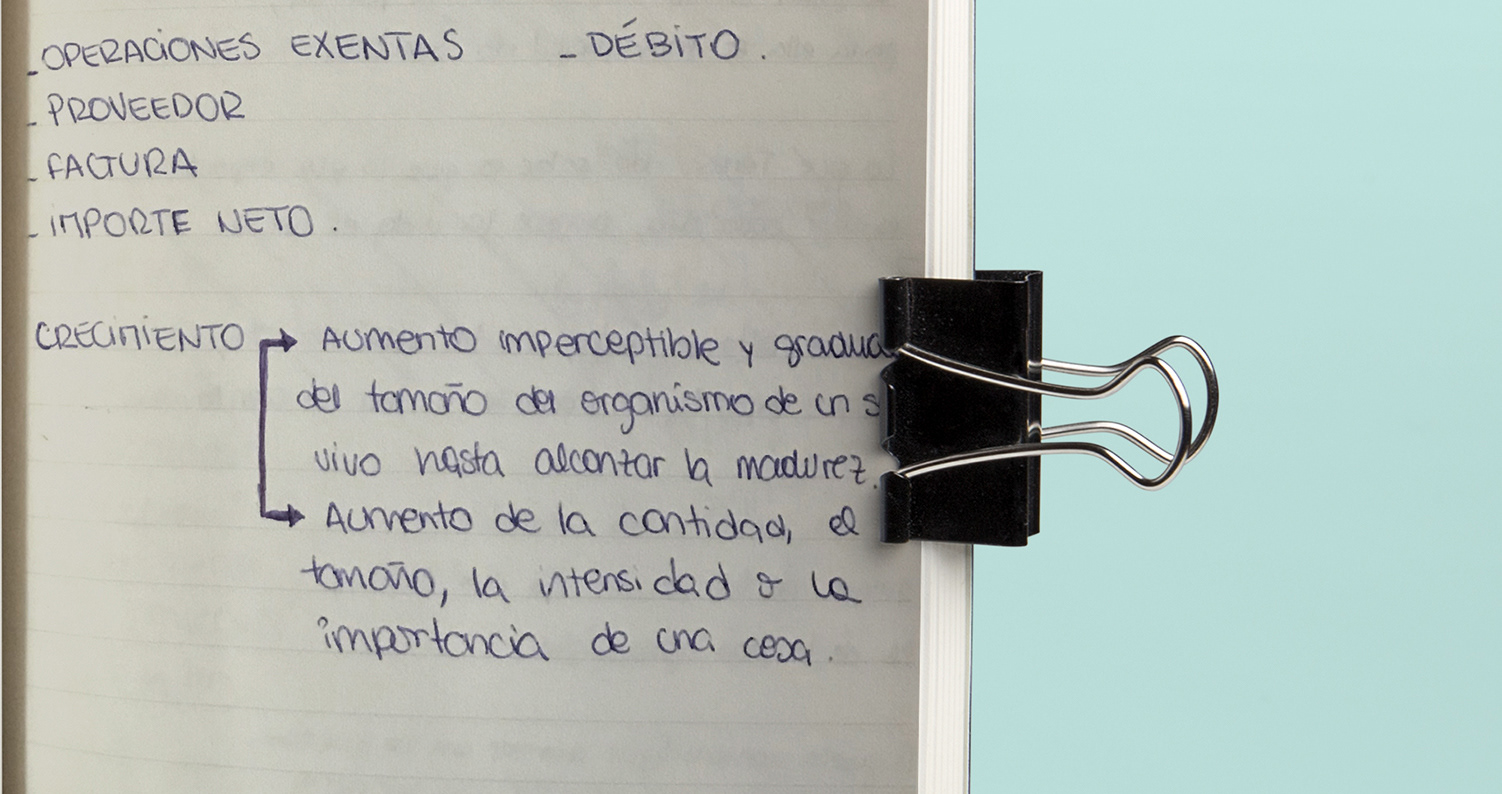 - OPERACIONES EXENTAS - DÉBITO.
- PROVEEDOR
- FACTURA
- IMPORTE NETO.
CRECIMIENTO → Aumento imperceptible y gradua
del tamaño del organismo de un s
vivo hasta alcanzar la madurez.
→ Aumento de la cantidad, el
tamaño, la intensidad o la
importancia de una cosa.